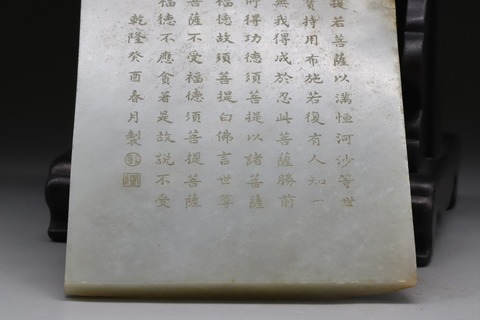 提若菩薩以滿恒河沙等世
寶持用布施若復有人知一
無我得成於忍此菩薩勝前
所得功德須菩提以諸菩薩
福德故須菩提白佛言世尊
菩薩不受福德須菩提菩薩
福德不應貪著是故說不受
乾隆癸酉春月製